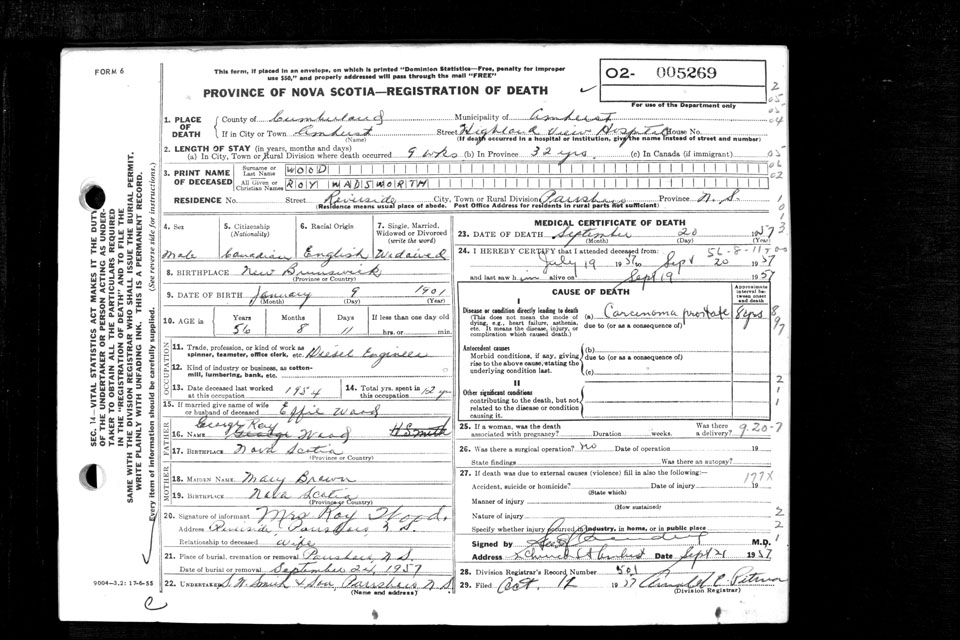 FORM 6
This form, if placed in an envelope, on which is printed "Dominion Statistics—Free, penalty for improper
use $50," and properly addressed will pass through the mail "FREE"
PROVINCE OF NOVA SCOTIA—REGISTRATION OF DEATH
02- 005269
For use of the Department only
1. PLACE OF DEATH
County of Cumberland Municipality of Amherst
If in City or Town Amherst Street Highland View Hospital House No.
(Name) (If death occurred in a hospital or institution, give the name instead of street and number)
2. LENGTH OF STAY (in years, months and days)
(a) In City, Town or Rural Division where death occurred 9 wks (b) In Province 32 yrs. (c) In Canada (if immigrant)
3. PRINT NAME OF DECEASED
Surname or Last Name WOOD
All Given or Christian Names ROY WADSWORTH
RESIDENCE No. Street Riverside City, Town or Rural Division Parrsboro Province N.S.
(Residence means usual place of abode. Post Office Address for residents of rural parts not sufficient)
4. Sex
Male
5. Citizenship (Nationality)
Canadian
6. Racial Origin
English
7. Single, Married, Widowed or Divorced (write the word)
8. BIRTHPLACE New Brunswick
(Province or Country)
9. DATE OF BIRTH January 9 1901
(Month) (Day) (Year)
10. AGE in Years Months Days If less than one day old
56 8 11 hrs. or min.
OCCUPATION
11. Trade, profession, or kind of work as
spinner, teamster, office clerk, etc. Diesel Engineer
12. Kind of industry or business, as cotton-
mill, lumbering, bank, etc.
13. Date deceased last worked at this occupation 1954
14. Total yrs. spent in this occupation 12 yrs
15. If married give name of wife
or husband of deceased Effie Wood
FATHER
George Roy
16. NAME George Wood
17. BIRTHPLACE Nova Scotia
(Province or Country)
MOTHER
18. MAIDEN NAME Mary Brown
19. BIRTHPLACE Nova Scotia
(Province or Country)
20. Signature of informant Mrs Roy Wood.
Address Riverside Parrsboro, N.S.
Relationship to deceased wife
21. Place of burial, cremation or removal Parrsboro, N.S.
Date of burial or removal September 22, 1957
22. UNDERTAKER S.W. Smith & Son, Parrsboro N.S.
(Name and address)
MEDICAL CERTIFICATE OF DEATH
23. DATE OF DEATH September 20 1957
(Month) (Day) (Year)
56-8-11
24. I HEREBY CERTIFY that I attended deceased from:
July 19 1957 to Sept 20 1957
and last saw him alive on Sept 19 1957
CAUSE OF DEATH
Approximate interval between onset and death
I
Disease or condition directly leading to death
(This does not mean the mode of
dying, e.g., heart failure, asthenia,
etc. It means the disease, injury, or
complication which caused death.)
(a) Carcinoma prostate 8 yrs
due to (or as a consequence of)
Antecedent causes
Morbid conditions, if any, giving
rise to the above cause, stating the
underlying condition last.
(b)
due to (or as a consequence of)
(c)
II
Other significant conditions
contributing to the death, but not
related to the disease or condition
causing it.
25. If a woman, was the death associated with pregnancy? Duration weeks. Was there a delivery? 9-20-7
26. Was there a surgical operation? no Date of operation 19
State findings Was there an autopsy?
27. If death was due to external causes (violence) fill in also the following:—
177X
Accident, suicide or homicide? Date of injury 19
(State which)
Manner of injury
(How sustained)
Nature of injury
Specify whether injury occurred in industry, in home, or in public place
Signed by M.D.
Address Church St Amherst Date Sept 21 1957
28. Division Registrar's Record Number 501
29. Filed Oct. 17 1957
(Division Registrar)
SEC. 14—VITAL STATISTICS ACT MAKES IT THE DUTY
OF THE UNDERTAKER OR PERSON ACTING AS UNDER-
TAKER TO OBTAIN ALL THE PARTICULARS REQUIRED
IN THE "REGISTRATION OF DEATH" AND TO FILE THE
SAME WITH THE DIVISION REGISTRAR WHO SHALL ISSUE THE BURIAL PERMIT.
WRITE PLAINLY WITH UNFADING INK. THIS IS A PERMANENT RECORD.
Every item of information should be carefully supplied. (See reverse side for instructions.)
9004-3.2: 17-6-55